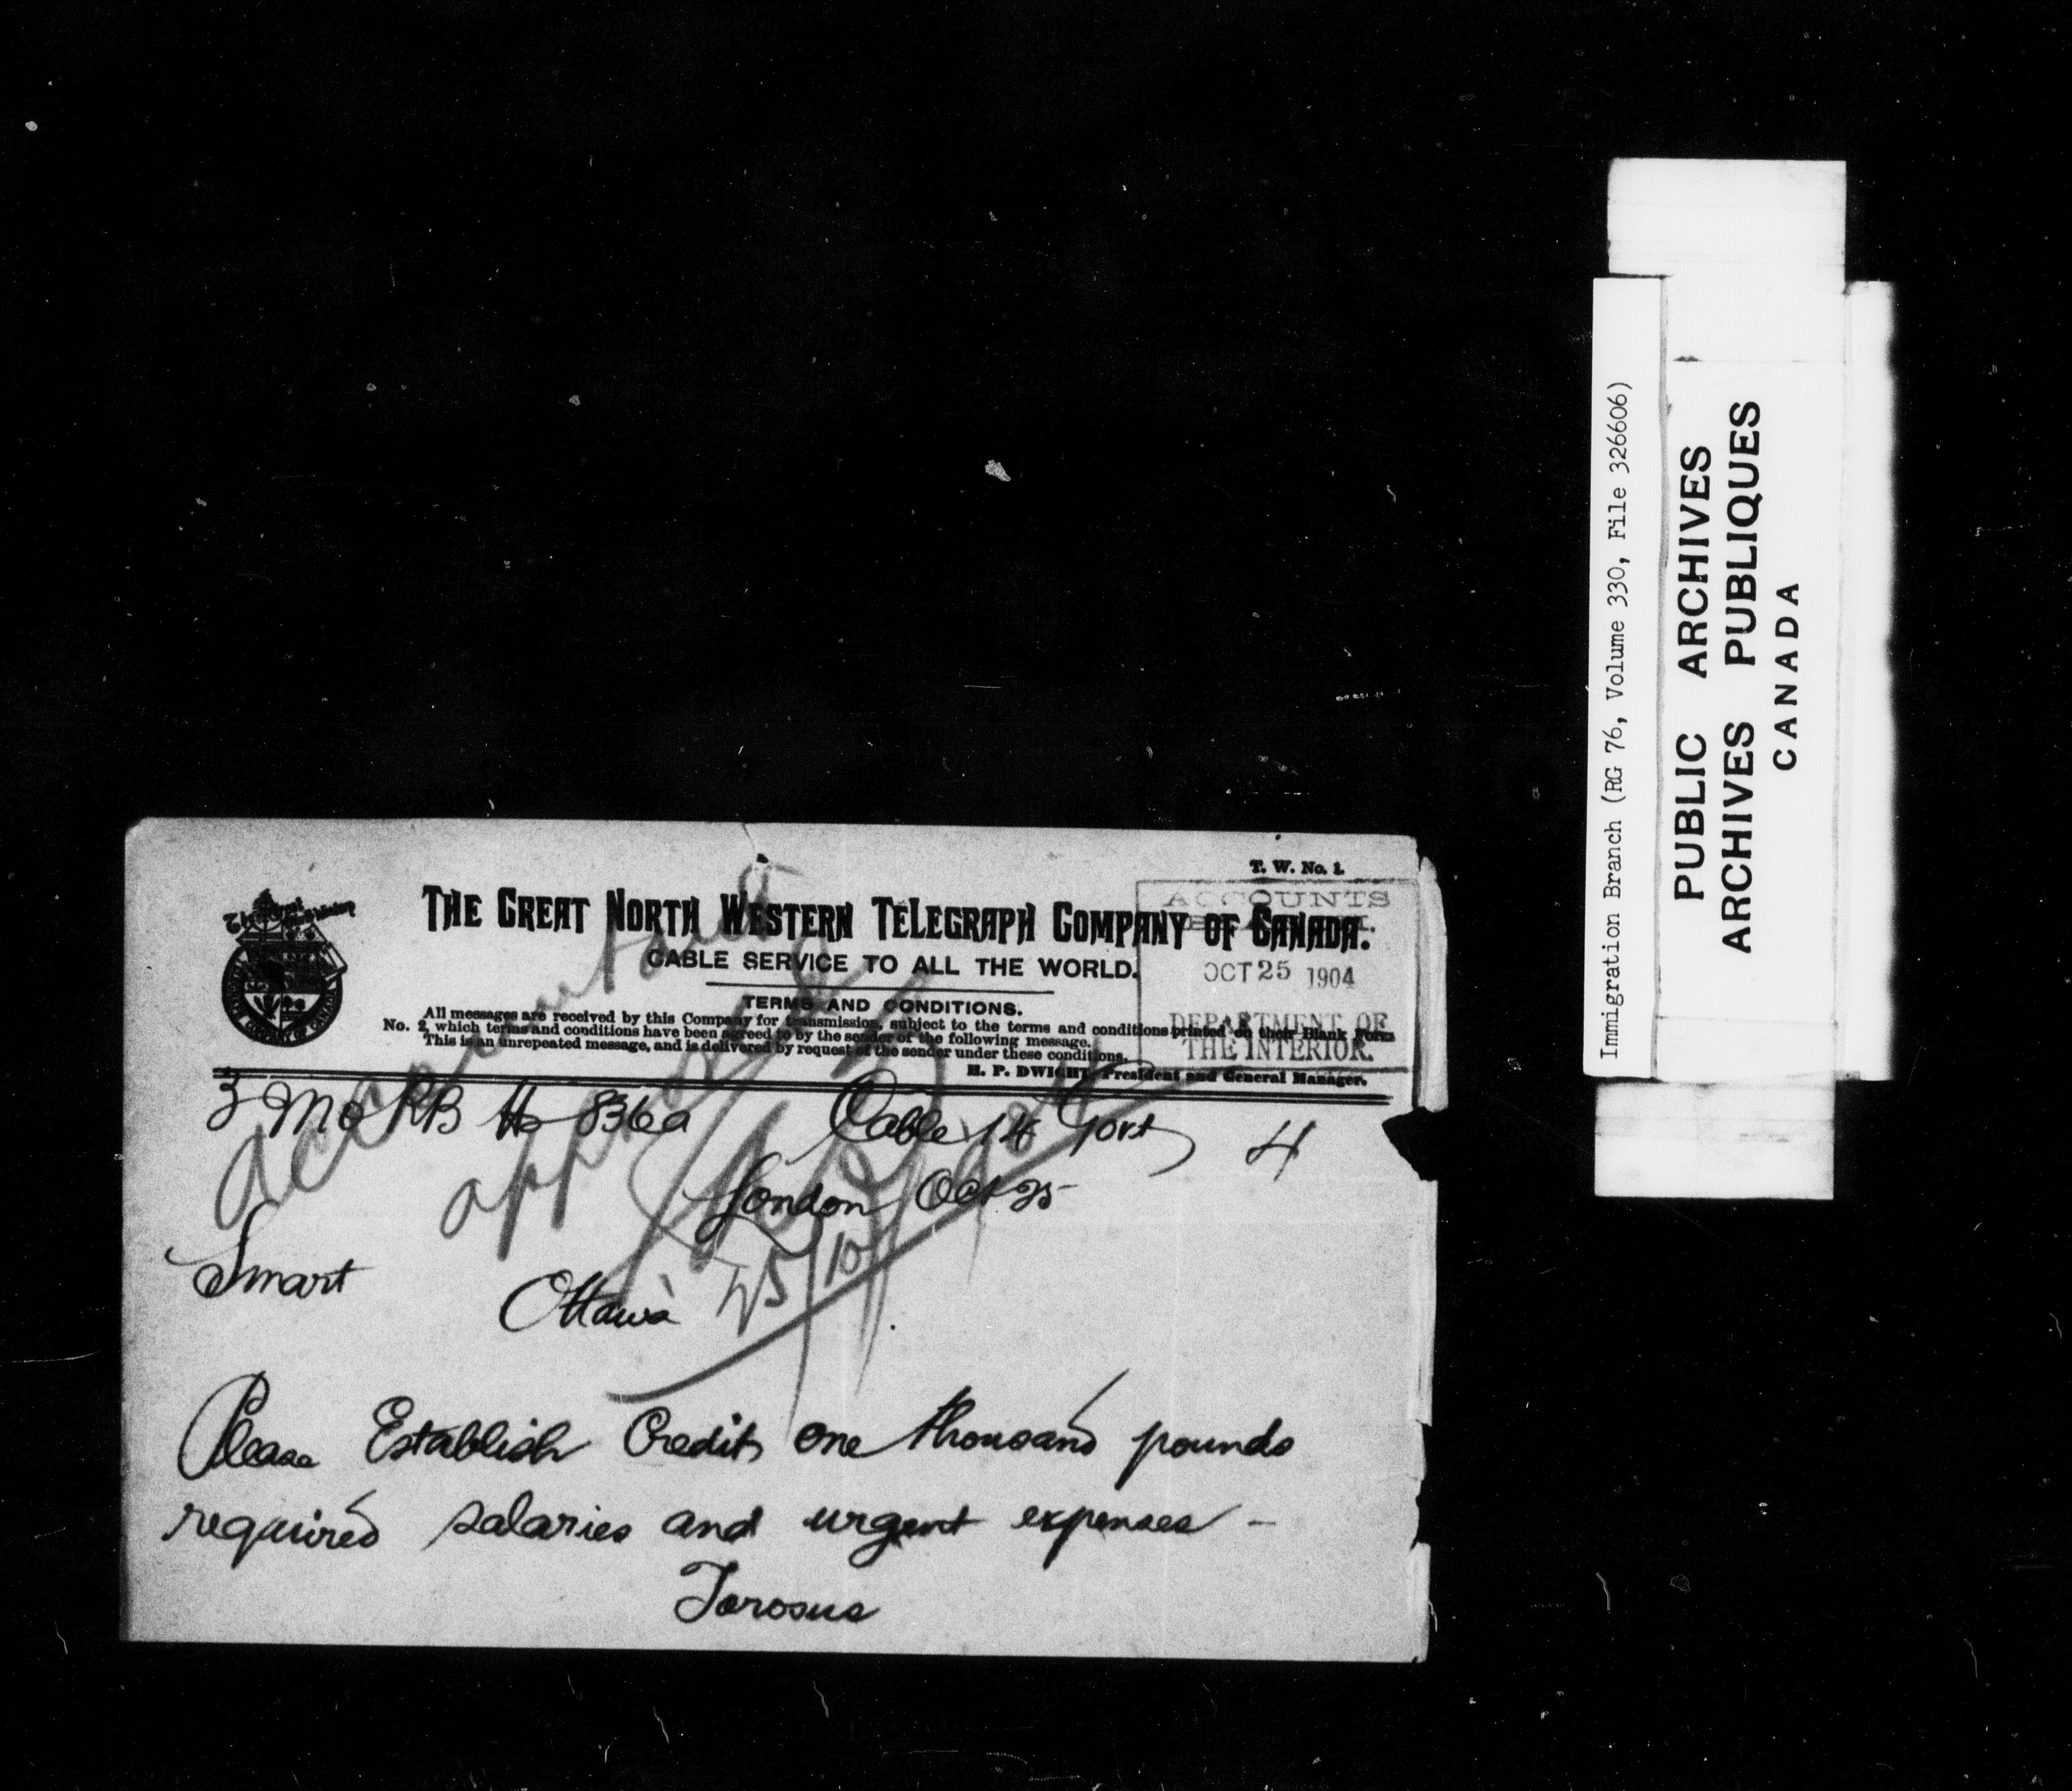 T. W. No. 1.
THE GREAT NORTH WESTERN TELEGRAPH COMPANY OF CANADA.
CABLE SERVICE TO ALL THE WORLD.
TERMS AND CONDITIONS.
All messages are received by this Company for transmission, subject to the terms and conditions printed on their Blank Form
No. 2, which terms and conditions have been agreed to by the sender of the following message.
This is an unrepeated message, and is delivered by request of the sender under these conditions.
H. P. DWIGHT, President and General Manager.
ACCOUNTS
OCT 25 1904
DEPARTMENT OF
THE INTERIOR.
Accountant
approved
25/10
3 Mo RB H 836a Cable 14 Govt 4
London Oct 25
Smart
Ottawa
Please Establish Credit one thousand pounds
required salaries and urgent expenses -
Torosus
Immigration Branch (RG 76, Volume 330, File 326606)
PUBLIC ARCHIVES
ARCHIVES PUBLIQUES
CANADA